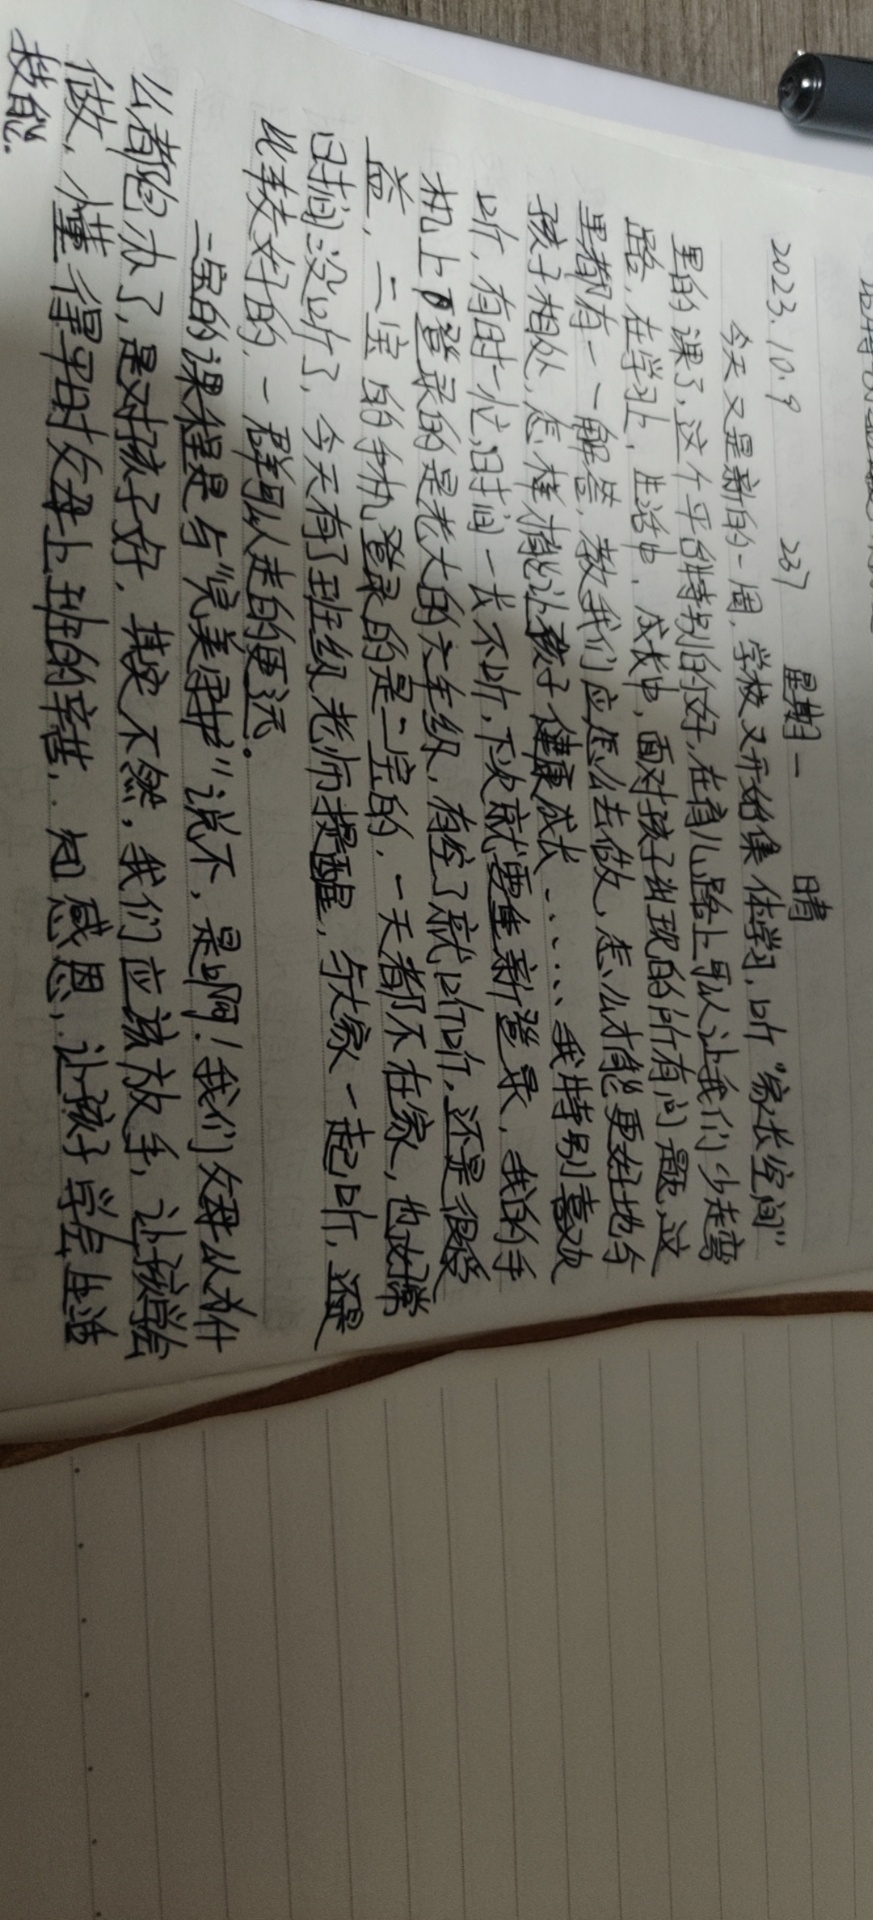 2023.10.9 237 星期一 晴
今天又是新的一周，学校又开始集体学习，听“家长空间”
里的课了，这个平台特别的好，在育儿路上可以让我们少走弯
路，在学习上，生活中，成长中，面对孩子出现的所有问题，这
里都有一一解答，教我们应怎么去做，怎么才能更好地与
孩子相处，怎样才能让孩子健康成长……我特别喜欢
听，有时忙，时间一长不听，下次就要重新登录，我的手
机上登录的是老大的六年级，有空了就听听，还是很受
益，二宝的手机登录的是二宝的，一天都不在家，也好常
时间没听了，今天有了班级老师提醒，与大家一起听，还是
比较好的，一群可以走的更远。
二宝的课程是与“完美保护”说不，是啊！我们父母以为什
么都包办了，是对孩子好，其实不然，我们应该放手，让孩学会
做，懂得平时父母上班的辛苦，知感恩，让孩子学会生活
技能.